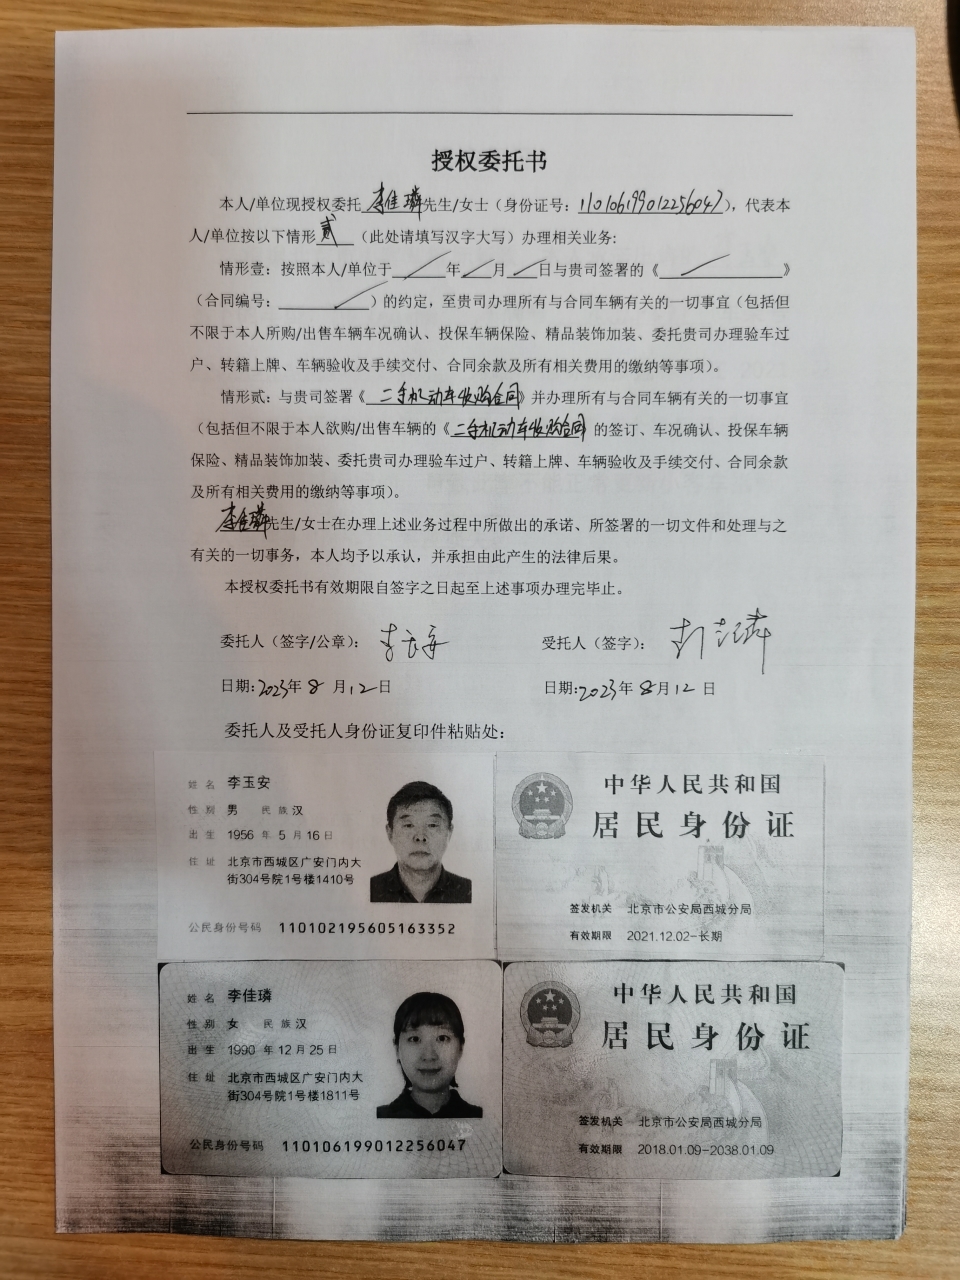 授权委托书
本人/单位现授权委托 李佳璘 先生/女士（身份证号：110106199012256047），代表本
人/单位按以下情形 贰 （此处请填写汉字大写）办理相关业务:
情形壹：按照本人/单位于 ／ 年 ／ 月 ／ 日与贵司签署的《 ／ 》
（合同编号： ／ ）的约定，至贵司办理所有与合同车辆有关的一切事宜（包括但
不限于本人所购/出售车辆车况确认、投保车辆保险、精品装饰加装、委托贵司办理验车过
户、转籍上牌、车辆验收及手续交付、合同余款及所有相关费用的缴纳等事项）。
情形贰：与贵司签署《 二手机动车收购合同 》并办理所有与合同车辆有关的一切事宜
（包括但不限于本人欲购/出售车辆的《 二手机动车收购合同 》的签订、车况确认、投保车辆
保险、精品装饰加装、委托贵司办理验车过户、转籍上牌、车辆验收及手续交付、合同余款
及所有相关费用的缴纳等事项）。
李佳璘 先生/女士在办理上述业务过程中所做出的承诺、所签署的一切文件和处理与之
有关的一切事务，本人均予以承认，并承担由此产生的法律后果。
本授权委托书有效期限自签字之日起至上述事项办理完毕止。
委托人（签字/公章）： 李玉安 受托人（签字）： 李佳璘
日期:2023年 8 月 12 日 日期:2023 年 8 月 12 日
委托人及受托人身份证复印件粘贴处：
姓名 李玉安
性别 男 民族 汉
出生 1956 年 5 月 16 日
住址 北京市西城区广安门内大
街304号院1号楼1410号
公民身份号码 110102195605163352
中华人民共和国
居民身份证
签发机关 北京市公安局西城分局
有效期限 2021.12.02-长期
姓名 李佳璘
性别 女 民族 汉
出生 1990 年 12 月 25 日
住址 北京市西城区广安门内大
街304号院1号楼1811号
公民身份号码 110106199012256047
中华人民共和国
居民身份证
签发机关 北京市公安局西城分局
有效期限 2018.01.09-2038.01.09